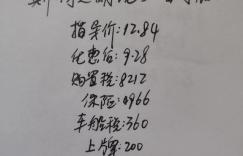 指导价:12.84
优惠后:9.28
购置税:8212
保险:4966
车船税:360
上牌:200